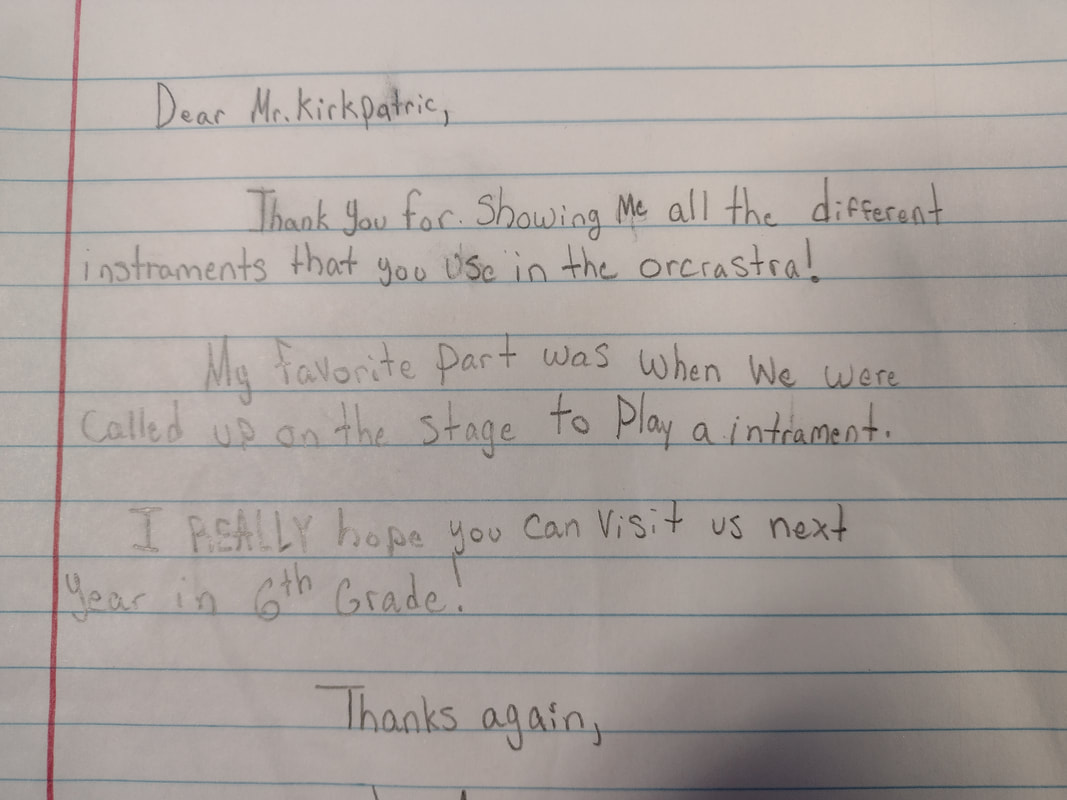 Dear Mr. Kirkpatric,
Thank you for. Showing Me all the different
instraments that you use in the orcrastra!
My favorite part was when We were
Called up on the stage to Play a intrament.
I REALLY hope you can Visit us next
year in 6th Grade!
Thanks again,